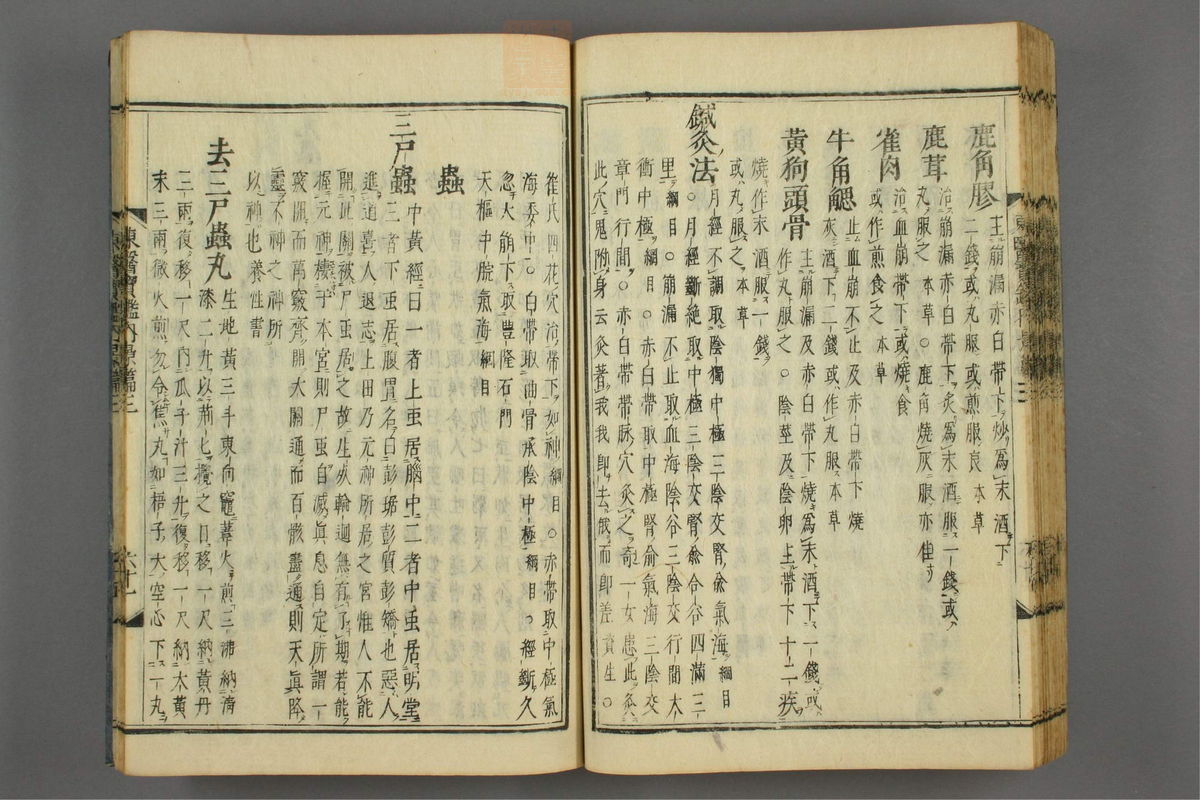 鹿角膠主崩漏赤白帶下炒爲末酒下
二錢或丸服或煎服良本草
鹿茸治崩漏赤白帶下炙爲末酒服一錢或
丸服之本草○鹿角燒灰服亦佳
雀肉治血崩帶下或燒食
或作煎食之本草
牛角䚡止血崩不止及赤白帶下燒
灰酒下二錢或作丸服本草
黃狗頭骨主崩漏及赤白帶下燒爲末酒下一錢或
作丸服之○陰莖及陰卵主帶下十二疾
燒作末酒服一錢
或丸服之本草
鍼灸法月經不調取陰獨中極三陰交腎兪氣海綱目
○月經斷絶取中極三陰交腎兪合谷四滿三
里綱目○崩漏不止取血海陰谷三陰交行間大
衝中極綱目○赤白帶取中極腎兪氣海三陰交
章門行間○赤白帶帶脉穴灸之奇一女患此灸
此穴鬼附身云灸著我我卽去俄而卽差資生○
崔氏四花穴治帶下如神綱目○赤帶取中極氣
海委中○白帶取曲骨承陰中極綱目○經斷久
忽大崩下取豐隆石門
天樞中脘氣海綱目
蟲
三尸蟲中黃經曰一者上虫居腦中二者中虫居明堂
三者下虫居腹胃名曰彭琚彭質彭矯也惡人
進道喜人退志上田乃元神所居之宮惟人不能
開此關被尸虫居之故生死輪迴無有了期若能
握元神棲于本宮則尸虫自滅眞息自定所謂一
竅開而萬竅齊開大關通而百骸盡通則天眞降
靈不神之神所
以神也養性書
去三尸蟲丸生地黃三斗東向竈葦火煎三沸納淸
漆二升以荊匕攪之日移一尺納黃丹
三兩復移一尺內瓜子汁三升復移一尺納大黃
末三兩微火煎勿令焦丸如梧子大空心下一丸
東醫寶鑑內景篇三
六十一